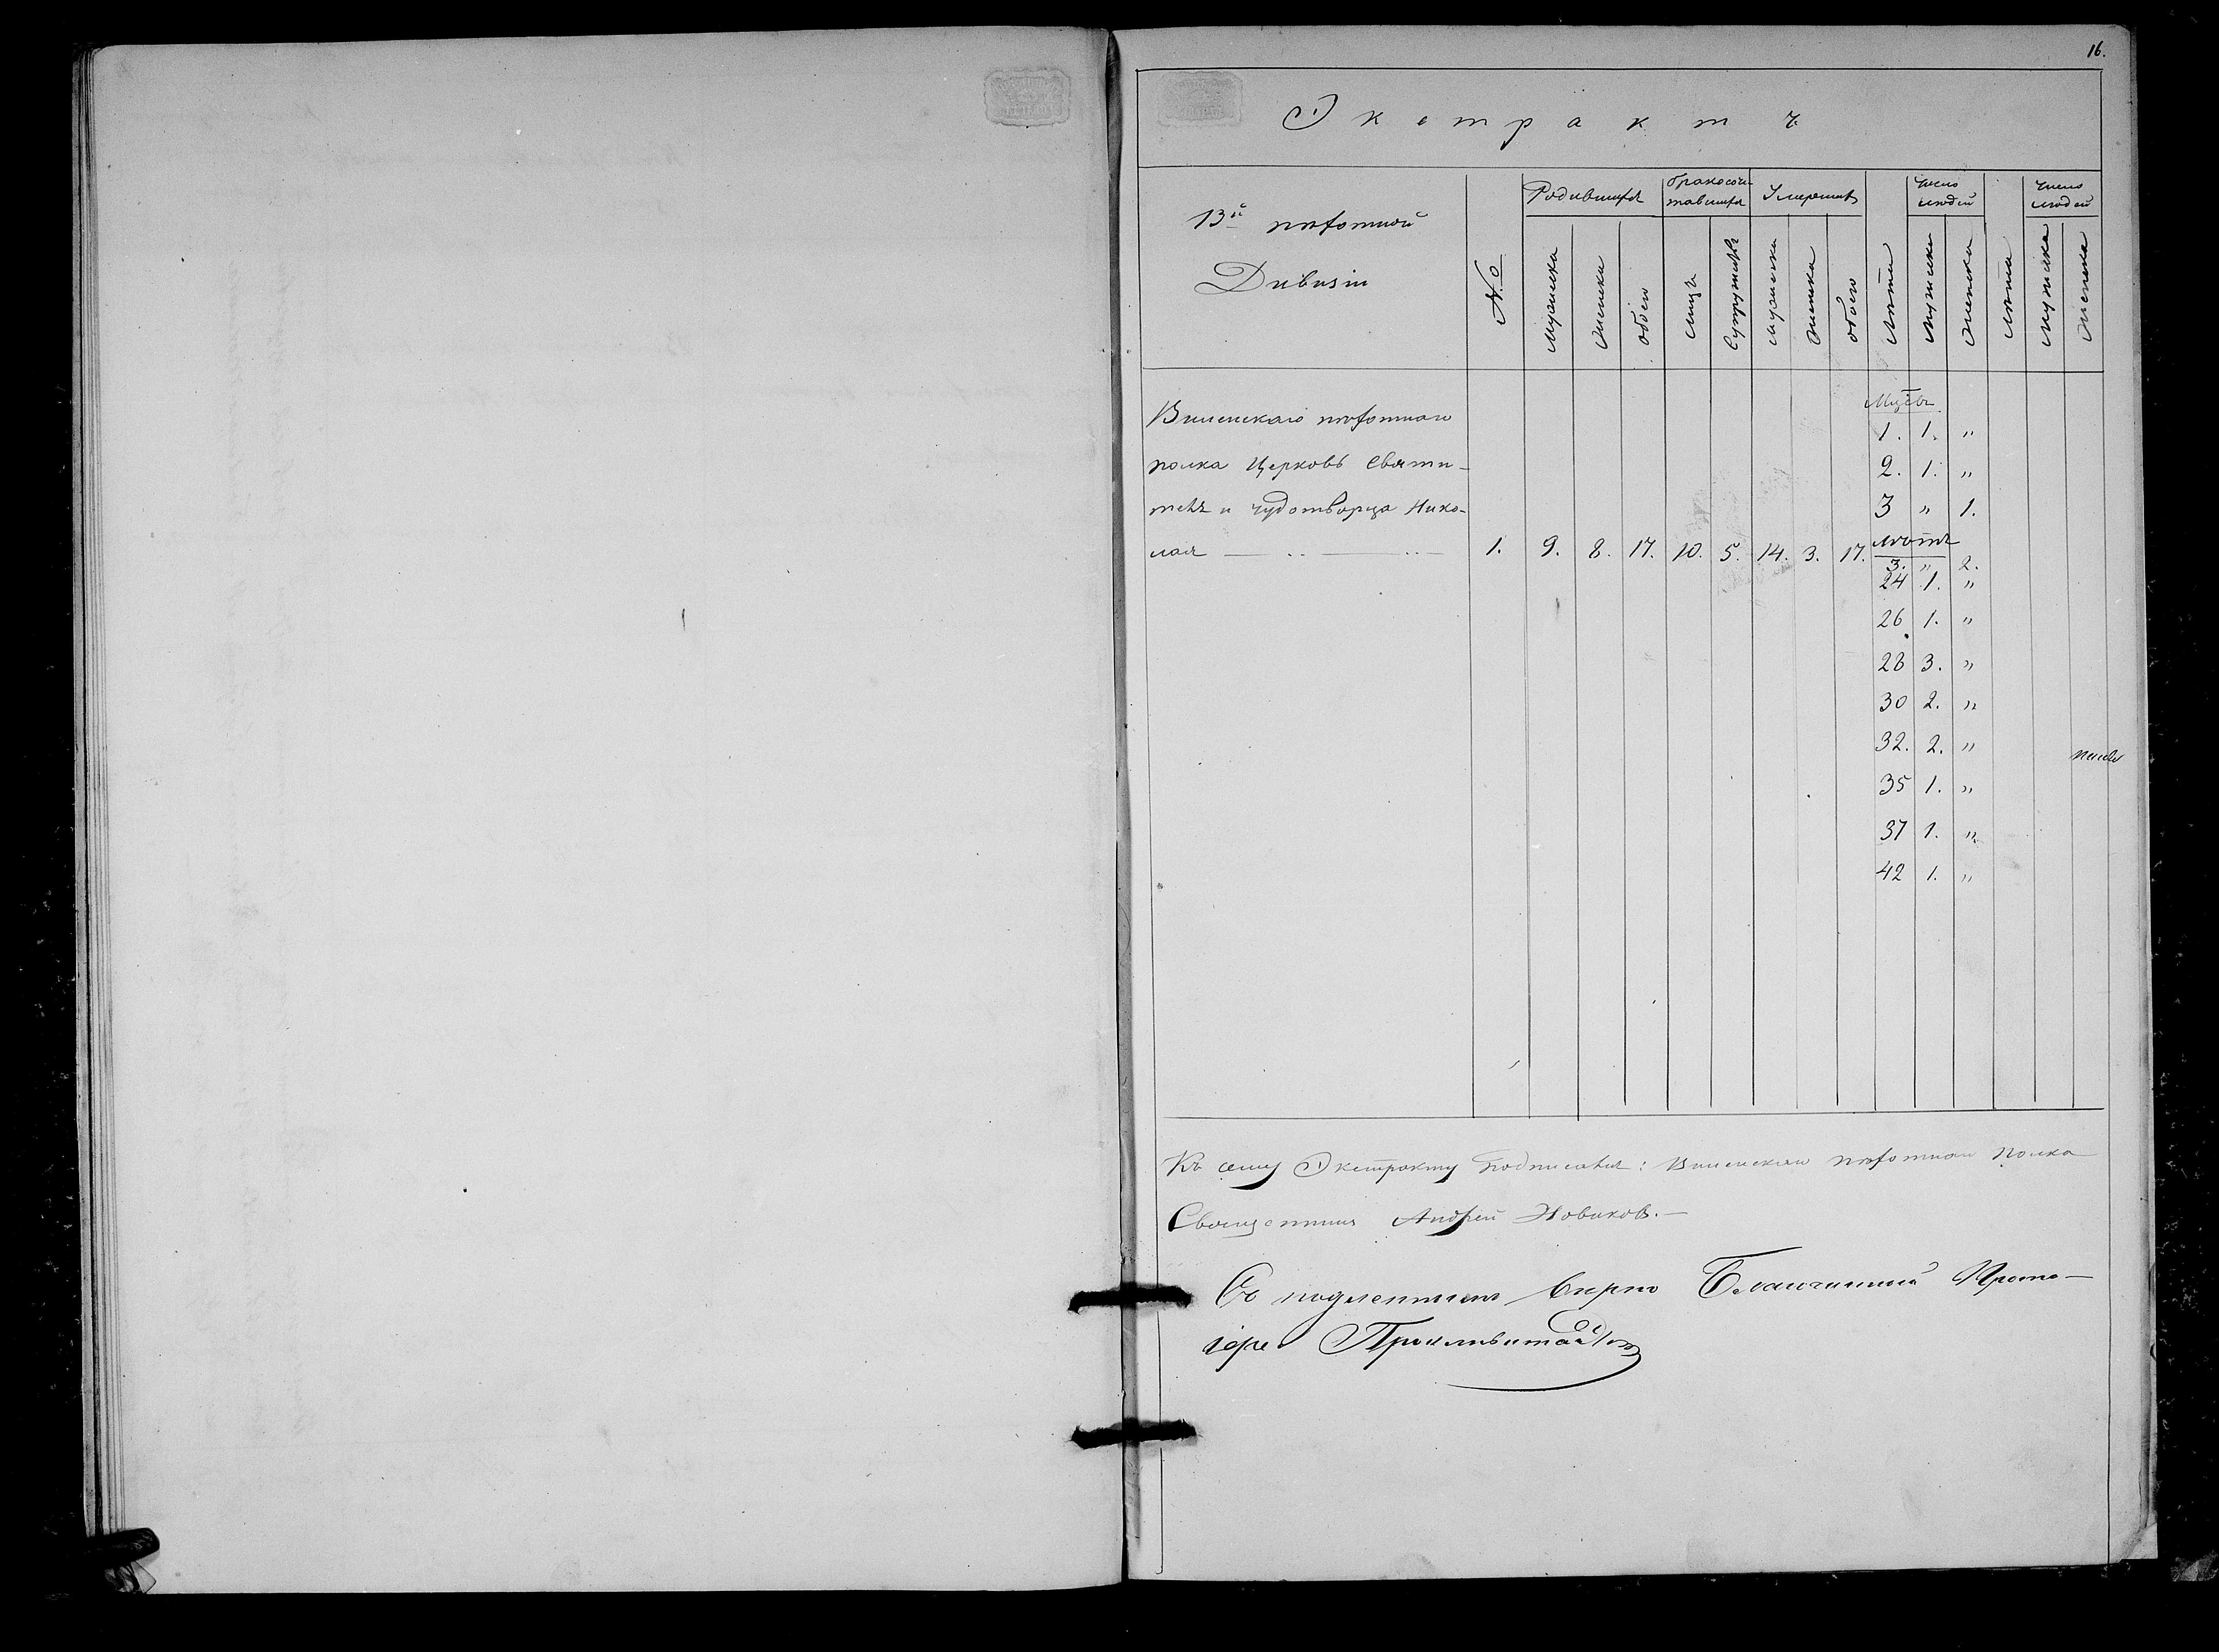 16.
Экстрактъ
13й пѣхотной
Дивизіи
№
Родившихся
Бракосоче-
тавшихся
Умершихъ
Число
людей
Число
людей
Мужеска
Женска
обоего
Лицъ
Супружествъ
Мужеска
Женска
обоего
Лѣта
Мужеска
Женска
Лѣта
Мужеска
Женска
Виленскаго пѣхотнаго
полка Церковь Святи-
теля и чудотворца Нико-
лая — .. — .. — 1. 9. 8. 17. 10. 5. 14. 3. 17.
Мцевъ
1. 1. „
2. 1. „
3 „ 1.
Лѣтъ
3. „ 2.
24 1. „
26 1. „
28 3. „
30 2. „
32. 2. „
35 1. „
37 1. „
42 1. „
Къ сему Экстракту подписался: Виленскаго пѣхотнаго полка
Священникъ Андрей Новиковъ.—
Съ подлиннымъ вѣрно Благочинный Прото-
іерей